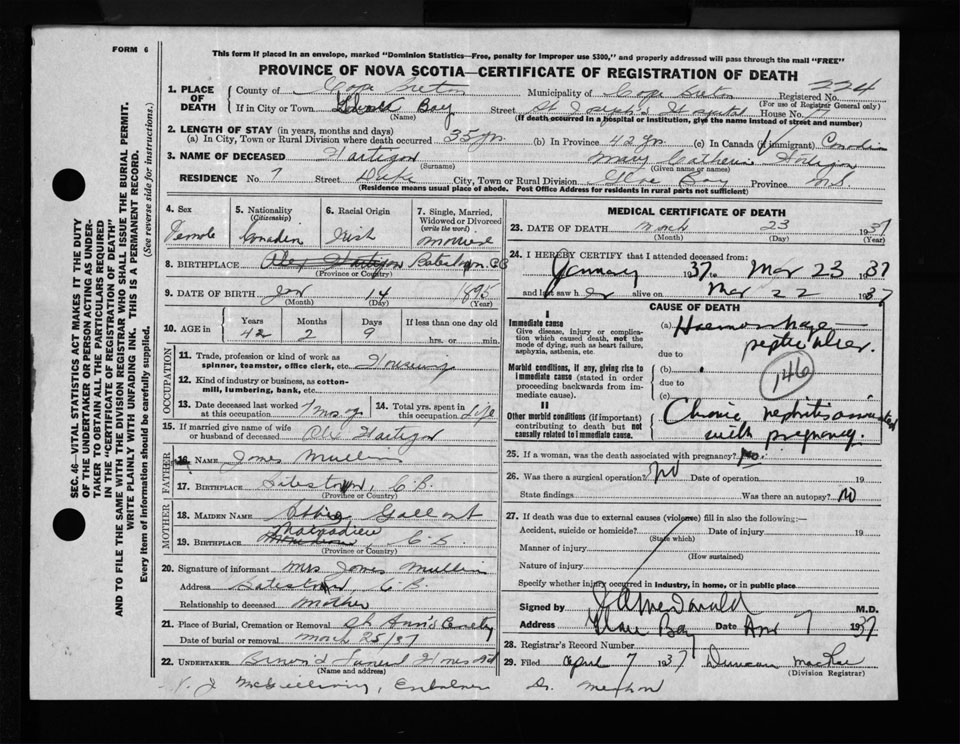 FORM 6
This form if placed in an envelope, marked "Dominion Statistics—Free, penalty for improper use $300," and properly addressed will pass through the mail "FREE"
PROVINCE OF NOVA SCOTIA—CERTIFICATE OF REGISTRATION OF DEATH
1. PLACE OF DEATH County of Cape Breton Municipality of Cape Breton Registered No. 224
(For use of Registrar General only)
If in City or Town Bay Street St Joseph's Hospital House No.
(Name) (If death occurred in a hospital or institution, give the name instead of street and number)
2. LENGTH OF STAY (in years, months and days)
(a) In City, Town or Rural Division where death occurred 35 yrs (b) In Province 42 yrs (c) In Canada (if immigrant) Canadian
3. NAME OF DECEASED Hartigan Mary Catherine Hartigan
(Surname) (Given name or names)
RESIDENCE No. 7 Street Duke City, Town or Rural Division Glace Bay Province N.S.
(Residence means usual place of abode. Post Office Address for residents in rural parts not sufficient)
4. Sex Female
5. Nationality (Citizenship) Canadian
6. Racial Origin Irish
7. Single, Married, Widowed or Divorced (write the word) Married
8. BIRTHPLACE Alex Hartigan C.B
(Province or Country)
9. DATE OF BIRTH Jan 14 1895
(Month) (Day) (Year)
10. AGE in Years Months Days If less than one day old
42 2 9 hrs. or min.
OCCUPATION
11. Trade, profession or kind of work as spinner, teamster, office clerk, etc.
12. Kind of industry or business, as cotton-mill, lumbering, bank, etc.
13. Date deceased last worked at this occupation
14. Total yrs. spent in this occupation Life
15. If married give name of wife or husband of deceased Alex Hartigan
FATHER
16. NAME James Mullin
17. BIRTHPLACE C.B.
(Province or Country)
MOTHER
18. MAIDEN NAME Gallant
19. BIRTHPLACE C.B.
(Province or Country)
20. Signature of informant Mrs James Mullin
Address C.B
Relationship to deceased Mother
21. Place of Burial, Cremation or Removal St Ann's Cemetry
Date of burial or removal March 25/37
22. UNDERTAKER Funeral Home
(Name and address)
Embalmer
MEDICAL CERTIFICATE OF DEATH
23. DATE OF DEATH March 23 1937
(Month) (Day) (Year)
24. I HEREBY CERTIFY that I attended deceased from:
January 1937 to Mar 23 1937
and last saw her alive on Mar 22 1937
CAUSE OF DEATH
I
Immediate cause
Give disease, injury or complication which caused death, not the mode of dying, such as heart failure, asphyxia, asthenia, etc.
(a) Haemorrhage—
peptic ulcer.
due to
Morbid conditions, if any, giving rise to immediate cause (stated in order proceeding backwards from immediate cause).
(b)
due to
(c)
146
II
Other morbid conditions (if important) contributing to death but not causally related to immediate cause.
Chronic nephritis associated
with pregnancy.
25. If a woman, was the death associated with pregnancy? No.
26. Was there a surgical operation? No Date of operation 19
State findings Was there an autopsy? No
27. If death was due to external causes (violence) fill in also the following:—
Accident, suicide or homicide? Date of injury 19
(State which)
Manner of injury
(How sustained)
Nature of injury
Specify whether injury occurred in industry, in home, or in public place
Signed by M.D.
Address Glace Bay Date Apr 7 1937
28. Registrar's Record Number
29. Filed April 7 1937 Duncan MacRae
(Division Registrar)
SEC. 46—VITAL STATISTICS ACT MAKES IT THE DUTY
OF THE UNDERTAKER OR PERSON ACTING AS UNDERTAKER TO OBTAIN ALL THE PARTICULARS REQUIRED
IN THE "CERTIFICATE OF REGISTRATION OF DEATH"
AND TO FILE THE SAME WITH THE DIVISION REGISTRAR WHO SHALL ISSUE THE BURIAL PERMIT.
WRITE PLAINLY WITH UNFADING INK. THIS IS A PERMANENT RECORD.
Every item of information should be carefully supplied. (See reverse side for instructions.)